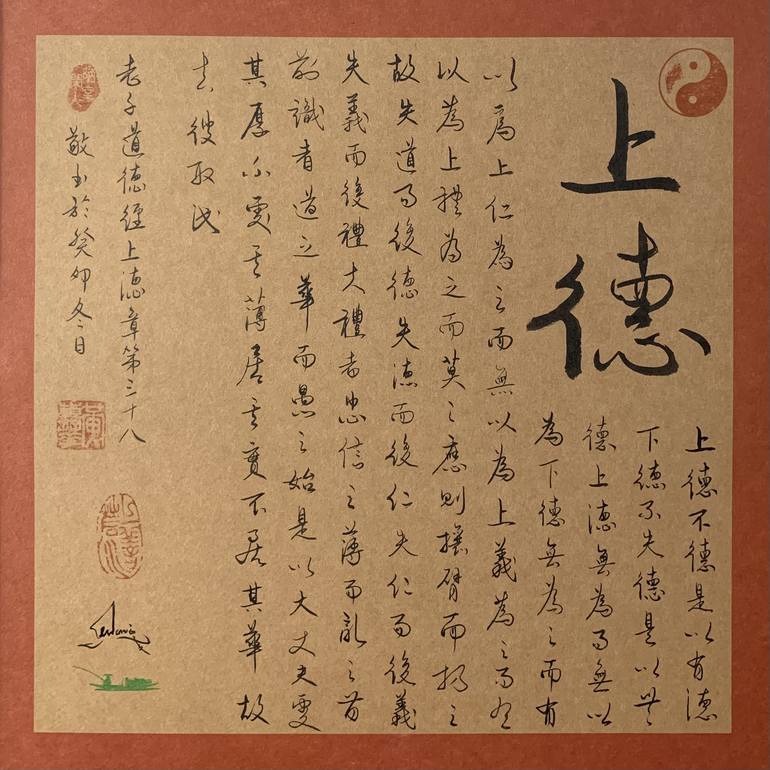 上德
上德不德是以有德
下德不失德是以無
德上德無為而無以
為下德無為之而有
以為上仁為之而無以為上義為之而有
以為上禮為之而莫之應則攘臂而扔之
故失道而後德失德而後仁失仁而後義
失義而後禮夫禮者忠信之薄而亂之首
前識者道之華而愚之始是以大丈夫處
其厚不處其薄居其實不居其華故
去彼取此
老子道德經上德章第三十八
敬书於癸卯冬日